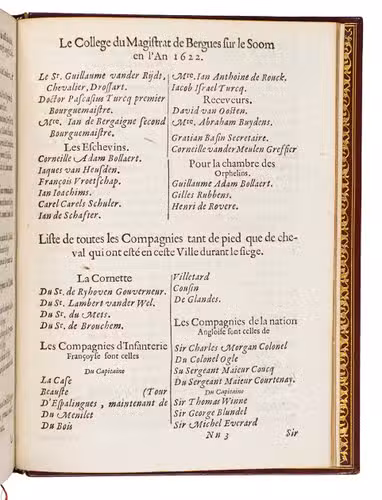 Le College du Magistrat de Bergues sur le Soom
en l'An 1622.
Le Sr. Guillaume vander Rijdt,
Chevalier, Drossart.
Doctor Pascasius Turcq premier
Bourguemaistre.
Mre. Ian de Bergaigne second
Bourguemaistre.
Les Eschevins.
Corneille Adam Bollaert.
Iaques van Heusden.
François Vroetschap.
Ian Ioachims.
Carel Carels Schuler.
Ian de Schafter.
Mre. Ian Anthoine de Ronck.
Iacob Israel Turcq.
Receveurs.
David van Oosten.
Mre. Abraham Buydens.
Gratian Basin Secretaire.
Corneille vander Meulen Greffier
Pour la chambre des
Orphelins.
Guillaume Adam Bollaert.
Gilles Rubbens.
Henri de Rovere.
Liste de toutes les Compagnies tant de pied que de che-
val qui ont esté en ceste Ville durant le siege.
La Cornette
Du Sr. de Ryhoven Gouverneur.
Du Sr. Lambert vander Wel.
Du Sr. du Mets.
Du Sr. de Brouchem.
Les Compagnies d'Infanterie
Françoyse sont celles
Du Capitaine
La Case
Beauste (Tour
D'Espalingues, maintenant de
Du Menilet
Du Bois
Villetard
Cousin
De Glandes.
Les Compagnies de la nation
Angloise sont celles de
Sir Charles Morgan Colonel
Du Colonel Ogle
Su Sergeant Maieur Coucq
Du Sergeant Maieur Courtenay.
Du Capitaine
Sir Thomas Winne
Sir George Blundel
Sir Michel Everard
Nn 3
Sir